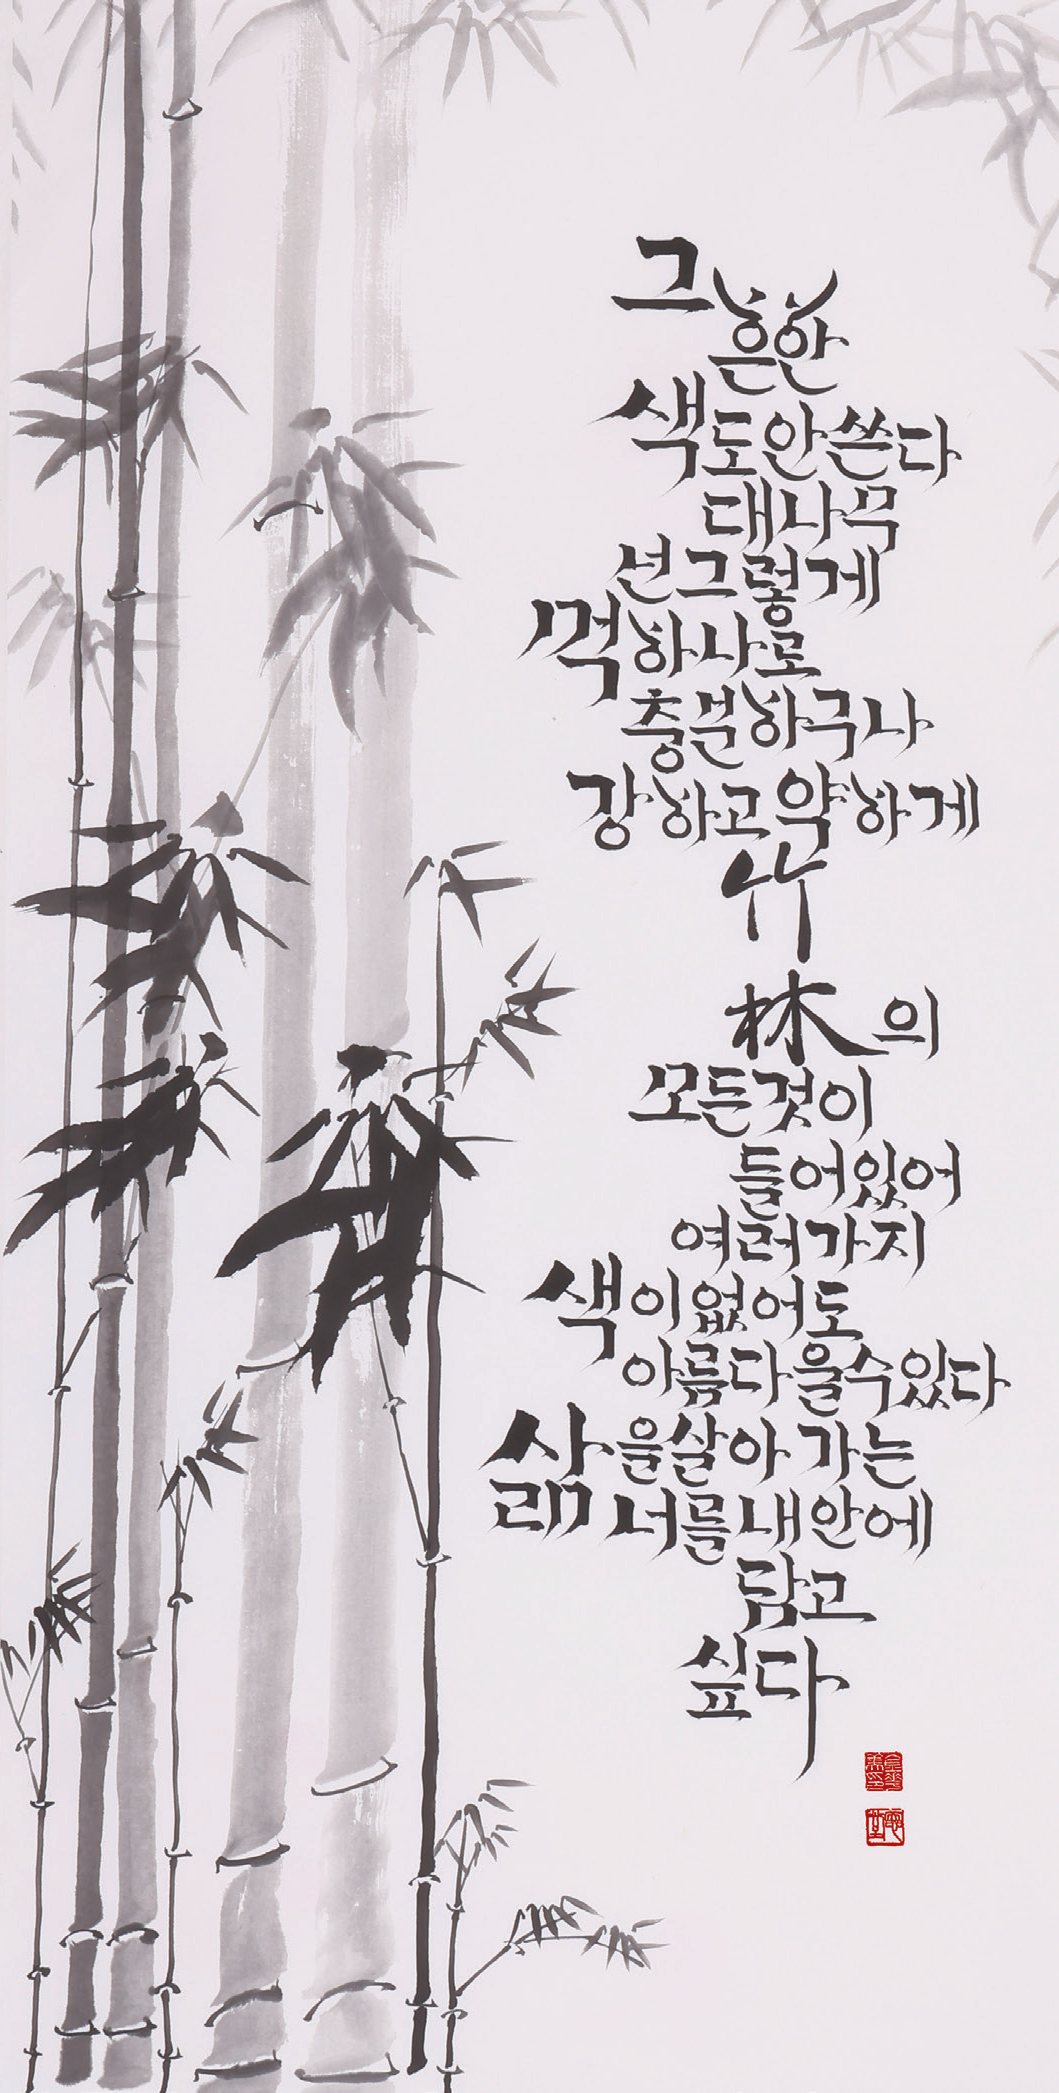 그
흔한
색도안쓴다
대나무
넌그렇게
먹하나로
충분하구나
강하고약하게
竹
林의
모든것이
들어있어
여러가지
색이없어도
아름다울수있다
삶을살아가는
너를내안에
담고
싶다